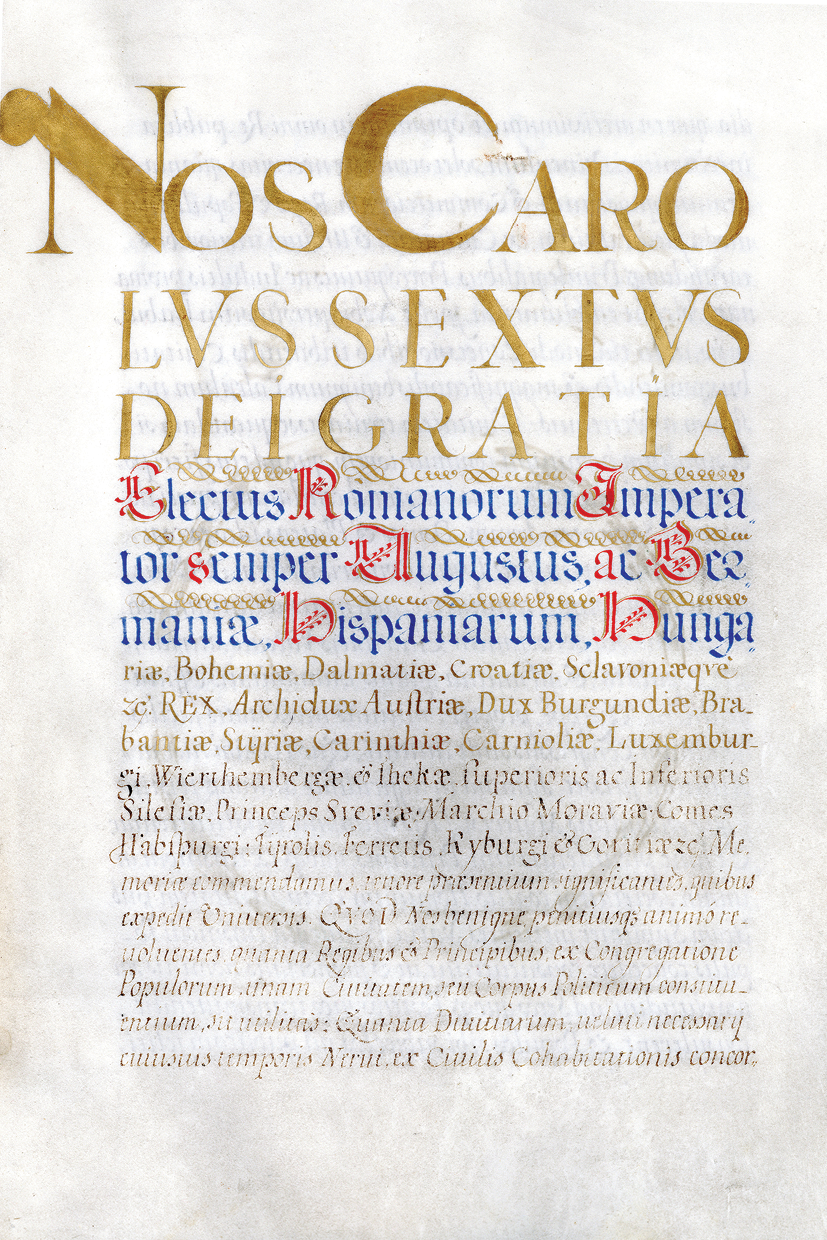 NOS CARO
LVS SEXTVS
DEI GRATIA
Electus Romanorum Impera„
tor semper Augustus, ac Ger„
maniæ, Hispaniarum, Hunga„
riæ, Bohemiæ, Dalmatiæ, Croatiæ, Sclavoniæqve
ꝛc̃. REX, Archidux Austriæ, Dux Burgundiæ, Bra_
bantiæ, Stÿriæ, Carinthiæ, Carnioliæ, Luxembur_
gi, Wierthembergæ, & Thekæ, superioris ac Inferioris
Silesiæ, Princeps Sveviæ, Marchio Moraviæ, Comes
Habspurgi, Tÿrolis, Ferretis, Kyburgi & Goritiæ ꝛc̃. Me,
moriæ commendamus, tenore præsentium significantes, quibus
expedit Universis. QVOD Nos benigne, penitiusq3 animo re_
voluentes, quanta Regibus & Principibus, ex Congregatione
Populorum in unam Civitatem, seu Corpus Politicum constitu_
entium, sit utilitas; Quanta Divitiarum, veluti necessarÿ
cuiusuis temporis Nervi, ex Civilis Cohabitationis concor„